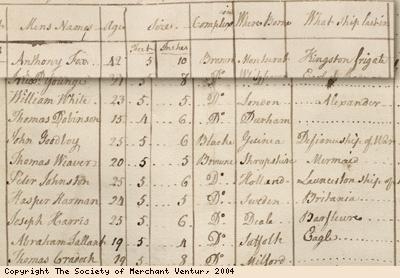 Mens Names Age Sizes Complexn Where Borne What Ship last in
Feet Inches
Anthony Fox 42 5 10 Brown Montserat Kingston frigate
William White 23 5 5 Do London Alexander
Thomas Robinson 15 4 6 Do Durham
John Goodboy 25 5 6 Blacke Guinea Defiance ship of War
Thomas Weaver 20 5 5 Browne Shropshire Mermaid
Peter Johnston 25 5 6 Do Holland Launceston ship of
Kasper Harman 24 5 5 Do Sweden Britania
Joseph Harris 25 5 6 Do Deale Barfleure
Abraham Tallant 19 5 4 Do Suffolk Eagle
Thomas Cradock 29 5 8 Do Milford
Copyright The Society of Merchant Ventur, 2004